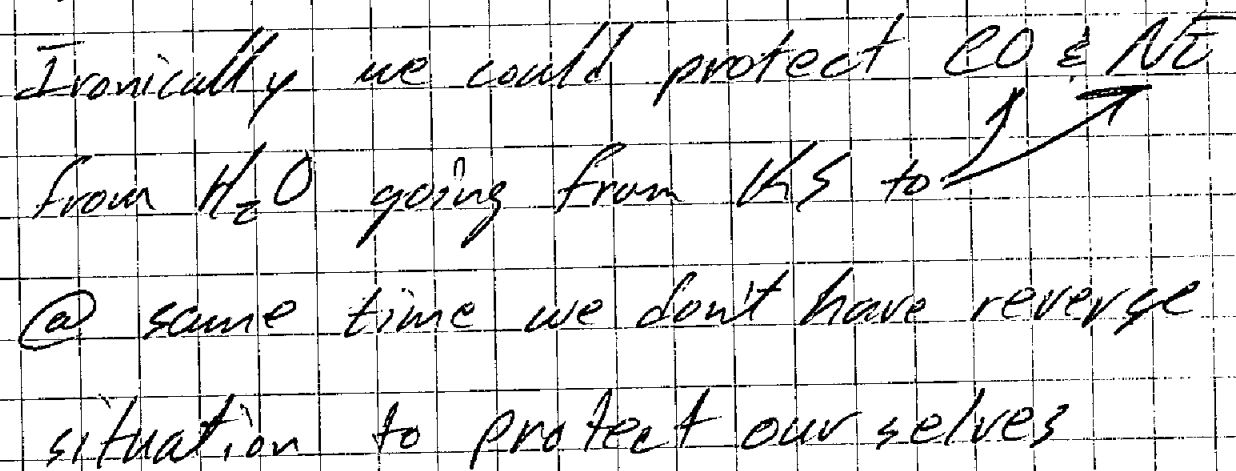 Ironically we could protect CO & NE
from H2O going from KS to
@ same time we don't have reverse
situation to protect our selves